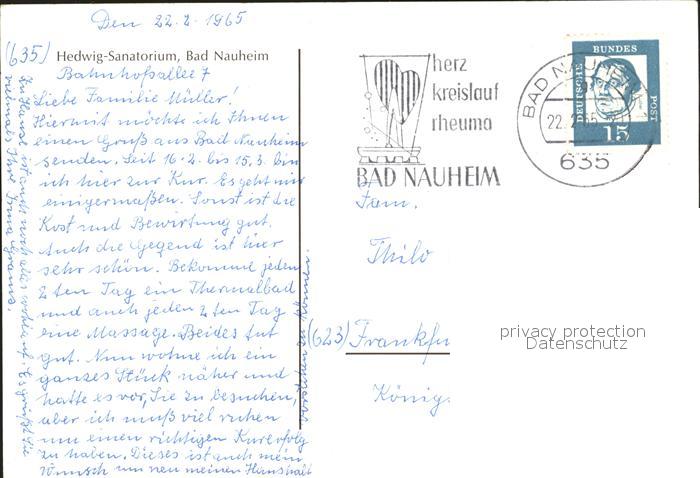 Den 22.2.1965
(635) Hedwig-Sanatorium, Bad Nauheim
Bahnhofsallee 7
Liebe Familie Müller!
Hiermit möchte ich Ihnen
einen Gruß aus Bad Nauheim
senden. Seit 16.2. bis 15.3. bin
ich hier zur Kur. Es geht mir
einigermaßen. Sonst ist die
Kost und Bewirtung gut.
Auch die Gegend ist hier
sehr schön. Bekomme jeden
2ten Tag ein Thermalbad
und auch jeden 2ten Tag
eine Massage. Beides tut
gut. Nun wohne ich ein
ganzes Stück näher und
hatte es vor, Sie zu besuchen,
aber ich muß viel ruhen
um einen richtigen Kurerfolg
zu haben. Dieses ist auch mein
Wunsch um neu meinen Haushalt
versehen zu können.
Zu Hause ist auch noch alles wohlauf. Es grüßt Sie
vielmals Ihre Irma
herz
kreislauf
rheuma
BAD NAUHEIM
BAD NAUHEIM
22.2.65
635
DEUTSCHE
BUNDES
POST
15
Fam.
Thilo
(623) Frankfu
König
privacy protection
Datenschutz